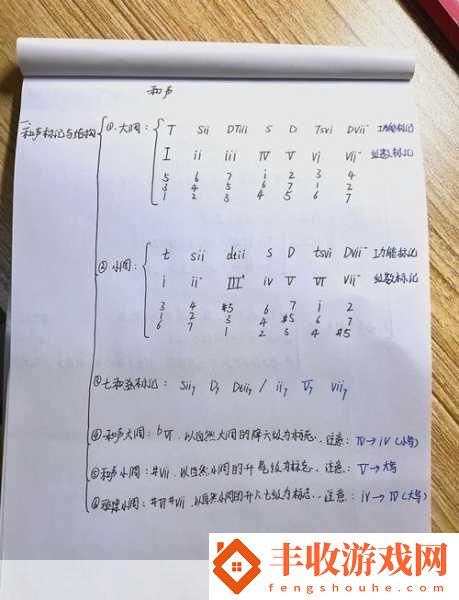 和声
一.和声标记与结构
① 大调: T Sii DTiii S D Tsvi Dvii° 功能标记
I ii iii IV V vi vii° 级数标记
5 6 7 i 2 3 4
3 4 5 6 7 1 2
1 2 3 4 5 6 7
② 小调: t sii dtiii S D tsvi Dvii° 功能标记
i ii° III⁺ iv V VI vii° 级数标记
3 4 #5 6 7 i 2
1 2 3 4 #5 6 7
6 7 1 2 3 4 #5
③ 七和弦标记: Sii₇ D₇ Dtii₇ / ii₇ V₇ vii₇
④ 和声大调: bVI. 以自然大调的降六级为标志. 注意: IV→iv (小写)
⑤ 和声小调: #vii. 以自然小调的升七级为标志. 注意: V→大写
⑥ 旋律小调: #VI #vii. 以自然小调的升六七级为标志. 注意: iv→IV (大写)
丰收游戏网
fengshouhe.com